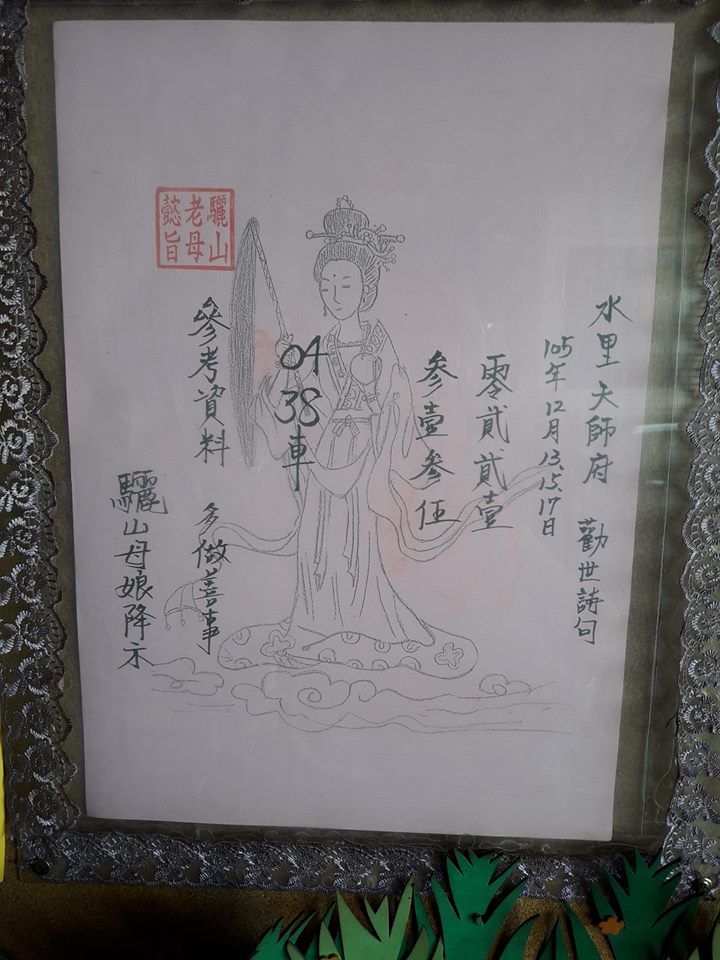 水里天師府 勸世詩句
105年12月13.15.17日
零貳貳壹
參壹參伍
04
38車
參考資料 多做善事
驪山母娘降示
驪山
老母
懿旨